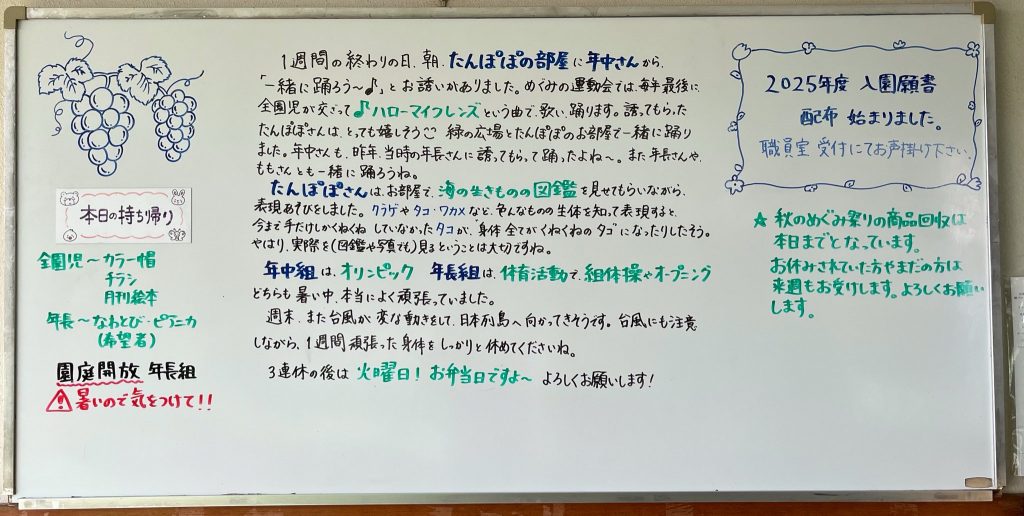 本日の持ち帰り
全園児〜カラー帽
チラシ
月刊絵本
年長〜なわとび・ピアニカ
(希望者)
園庭開放 年長組
暑いので気をつけて!!
1週間の終わりの日、朝、たんぽぽの部屋に年中さんから、
「一緒に踊ろう〜♪」とお誘いがありました。めぐみの運動会では、毎年最後に
全園児が交ざって♪ハローマイフレンズという曲で、歌い、踊ります。誘ってもらった
たんぽぽさんは、とっても嬉しそう 緑の広場とたんぽぽのお部屋で一緒に踊り
ました。年中さんも、昨年、当時の年長さんに誘ってもらって踊ったよね〜。また年長さんや、
ももさんとも一緒に踊ろうね。
たんぽぽさんは、お部屋で、海の生きものの図鑑を見せてもらいながら、
表現あそびをしました。クラゲやタコ・ワカメなど、色んなものの生体を知って表現すると、
今まで手だけくねくねしていなかったタコが、"身体全てがくねくねのタコ"になったりしたそう。
やはり、実際を(図鑑や写真でも)見るということは大切ですね。
年中組は、オリンピック 年長組は、体育活動で、組体操やオープニング
どちらも暑い中、本当によく頑張っていました。
週末、また台風が変な動きをして、日本列島へ向かってきそうです。台風にも注意
しながら、1週間頑張った身体をしっかりと休めてくださいね。
3連休の後は 火曜日! お弁当日ですよ〜 よろしくお願いします!
2025年度 入園願書
配布 始まりました。
職員室 受付にてお声掛け下さい。
★ 秋のめぐみ祭りの商品回収は
本日までとなっています。
お休みされていた方やまだの方は
来週もお受けします。よろしくお願い
します。